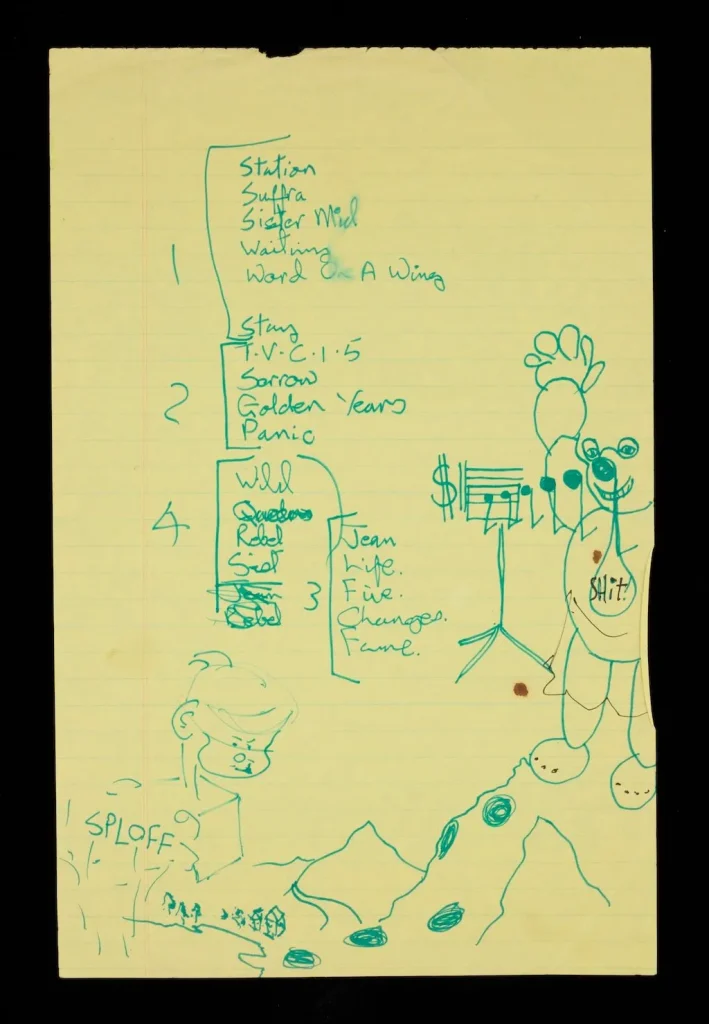 1
Station
Suffra
Sister Mid
Waiting
Word On A Wing
Stay
2
T.V.C.1.5
Sorrow
Golden Years
Panic
4
Wild
Queen
Rebel
Sist
Jean
Rebel
3
Jean
Life.
Five.
Changes.
Fame.
$
SHit!
SPLOFF